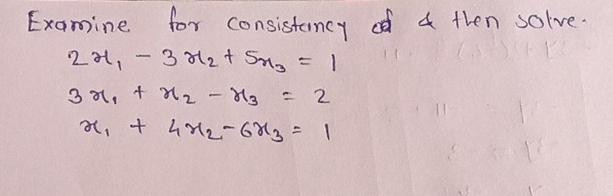 Examine for consistancy & then solve.
2x₁ - 3x₂ + 5x₃ = 1
3x₁ + x₂ - x₃ = 2
x₁ + 4x₂ - 6x₃ = 1